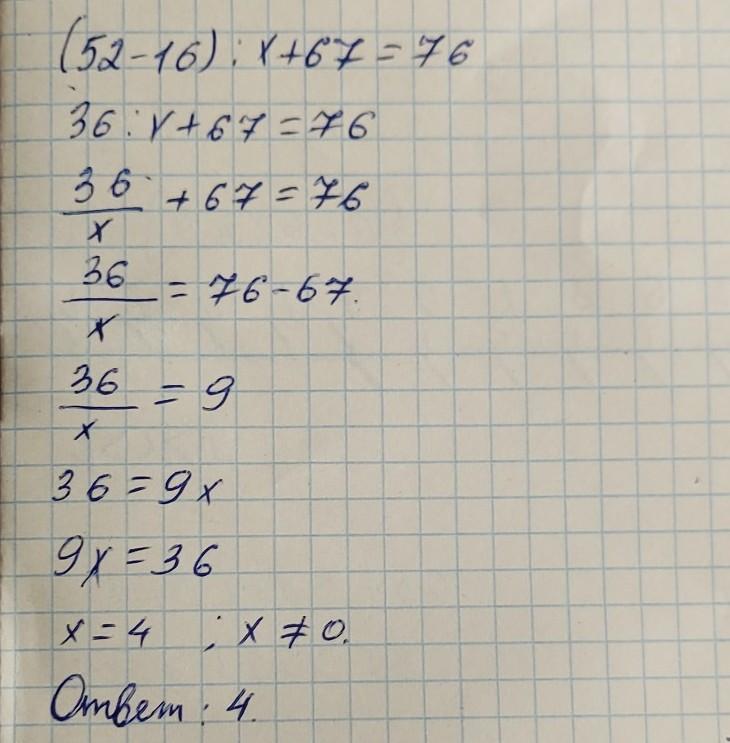 (52-16) : x+67=76
36 : x+67=76
36/x + 67 = 76
36/x = 76-67.
36/x = 9
36=9x
9x=36
x=4 ; x ≠ 0.
Ответ: 4.